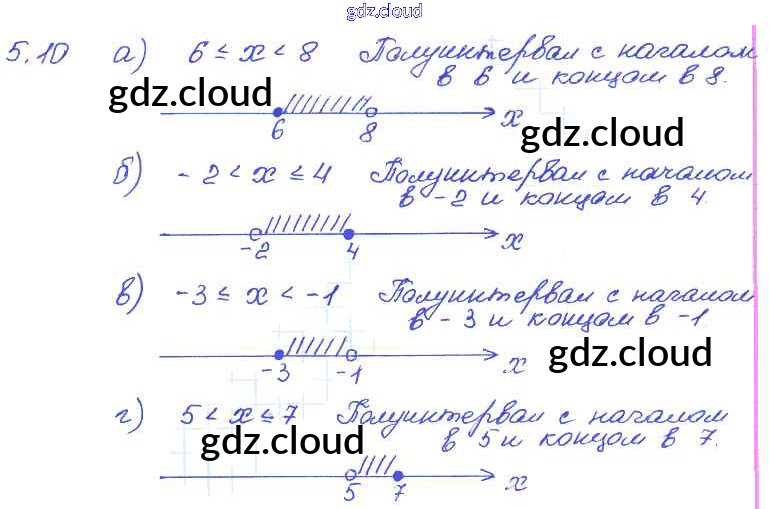 gdz.cloud
5.10 а) 6 ≤ x < 8 Полуинтервал с началом
в 6 и концом в 8.
gdz.cloud
6 8 x
gdz.cloud
б) -2 < x ≤ 4 Полуинтервал с началом
в -2 и концом в 4.
-2 4 x
в) -3 ≤ x < -1 Полуинтервал с началом
в -3 и концом в -1.
gdz.cloud
-3 -1 x
г) 5 < x ≤ 7 Полуинтервал с началом
в 5 и концом в 7.
gdz.cloud
5 7 x